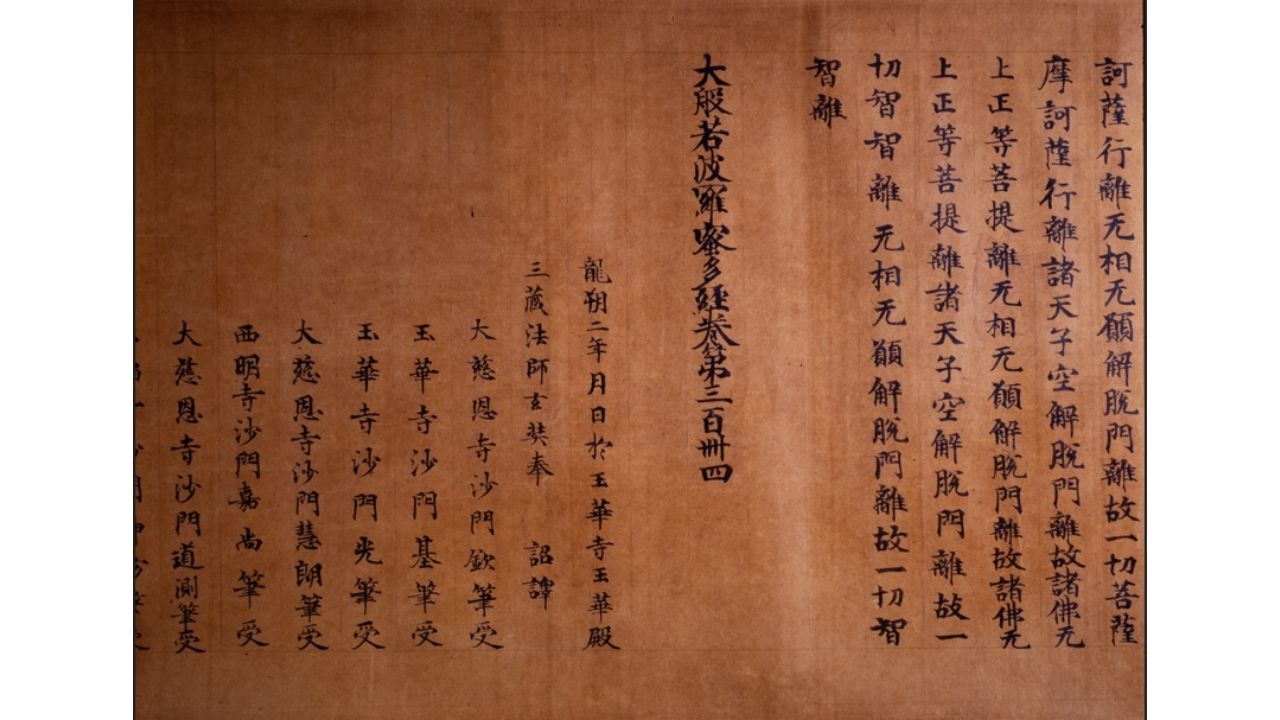 訶薩行離无相无願解脱門離故一切菩薩
摩訶薩行離諸天子空解脱門離故諸佛无
上正等菩提離无相无願解脱門離故諸佛无
上正等菩提離諸天子空解脱門離故一
切智智離无相无願解脱門離故一切智
智離
大般若波羅蜜多經卷第三百卌四
龍朔二年月日於玉華寺玉華殿
三藏法師玄奘奉 詔譯
大慈恩寺沙門欽筆受
玉華寺沙門基筆受
玉華寺沙門光筆受
大慈恩寺沙門慧朗筆受
西明寺沙門嘉尚筆受
大慈恩寺沙門道測筆受